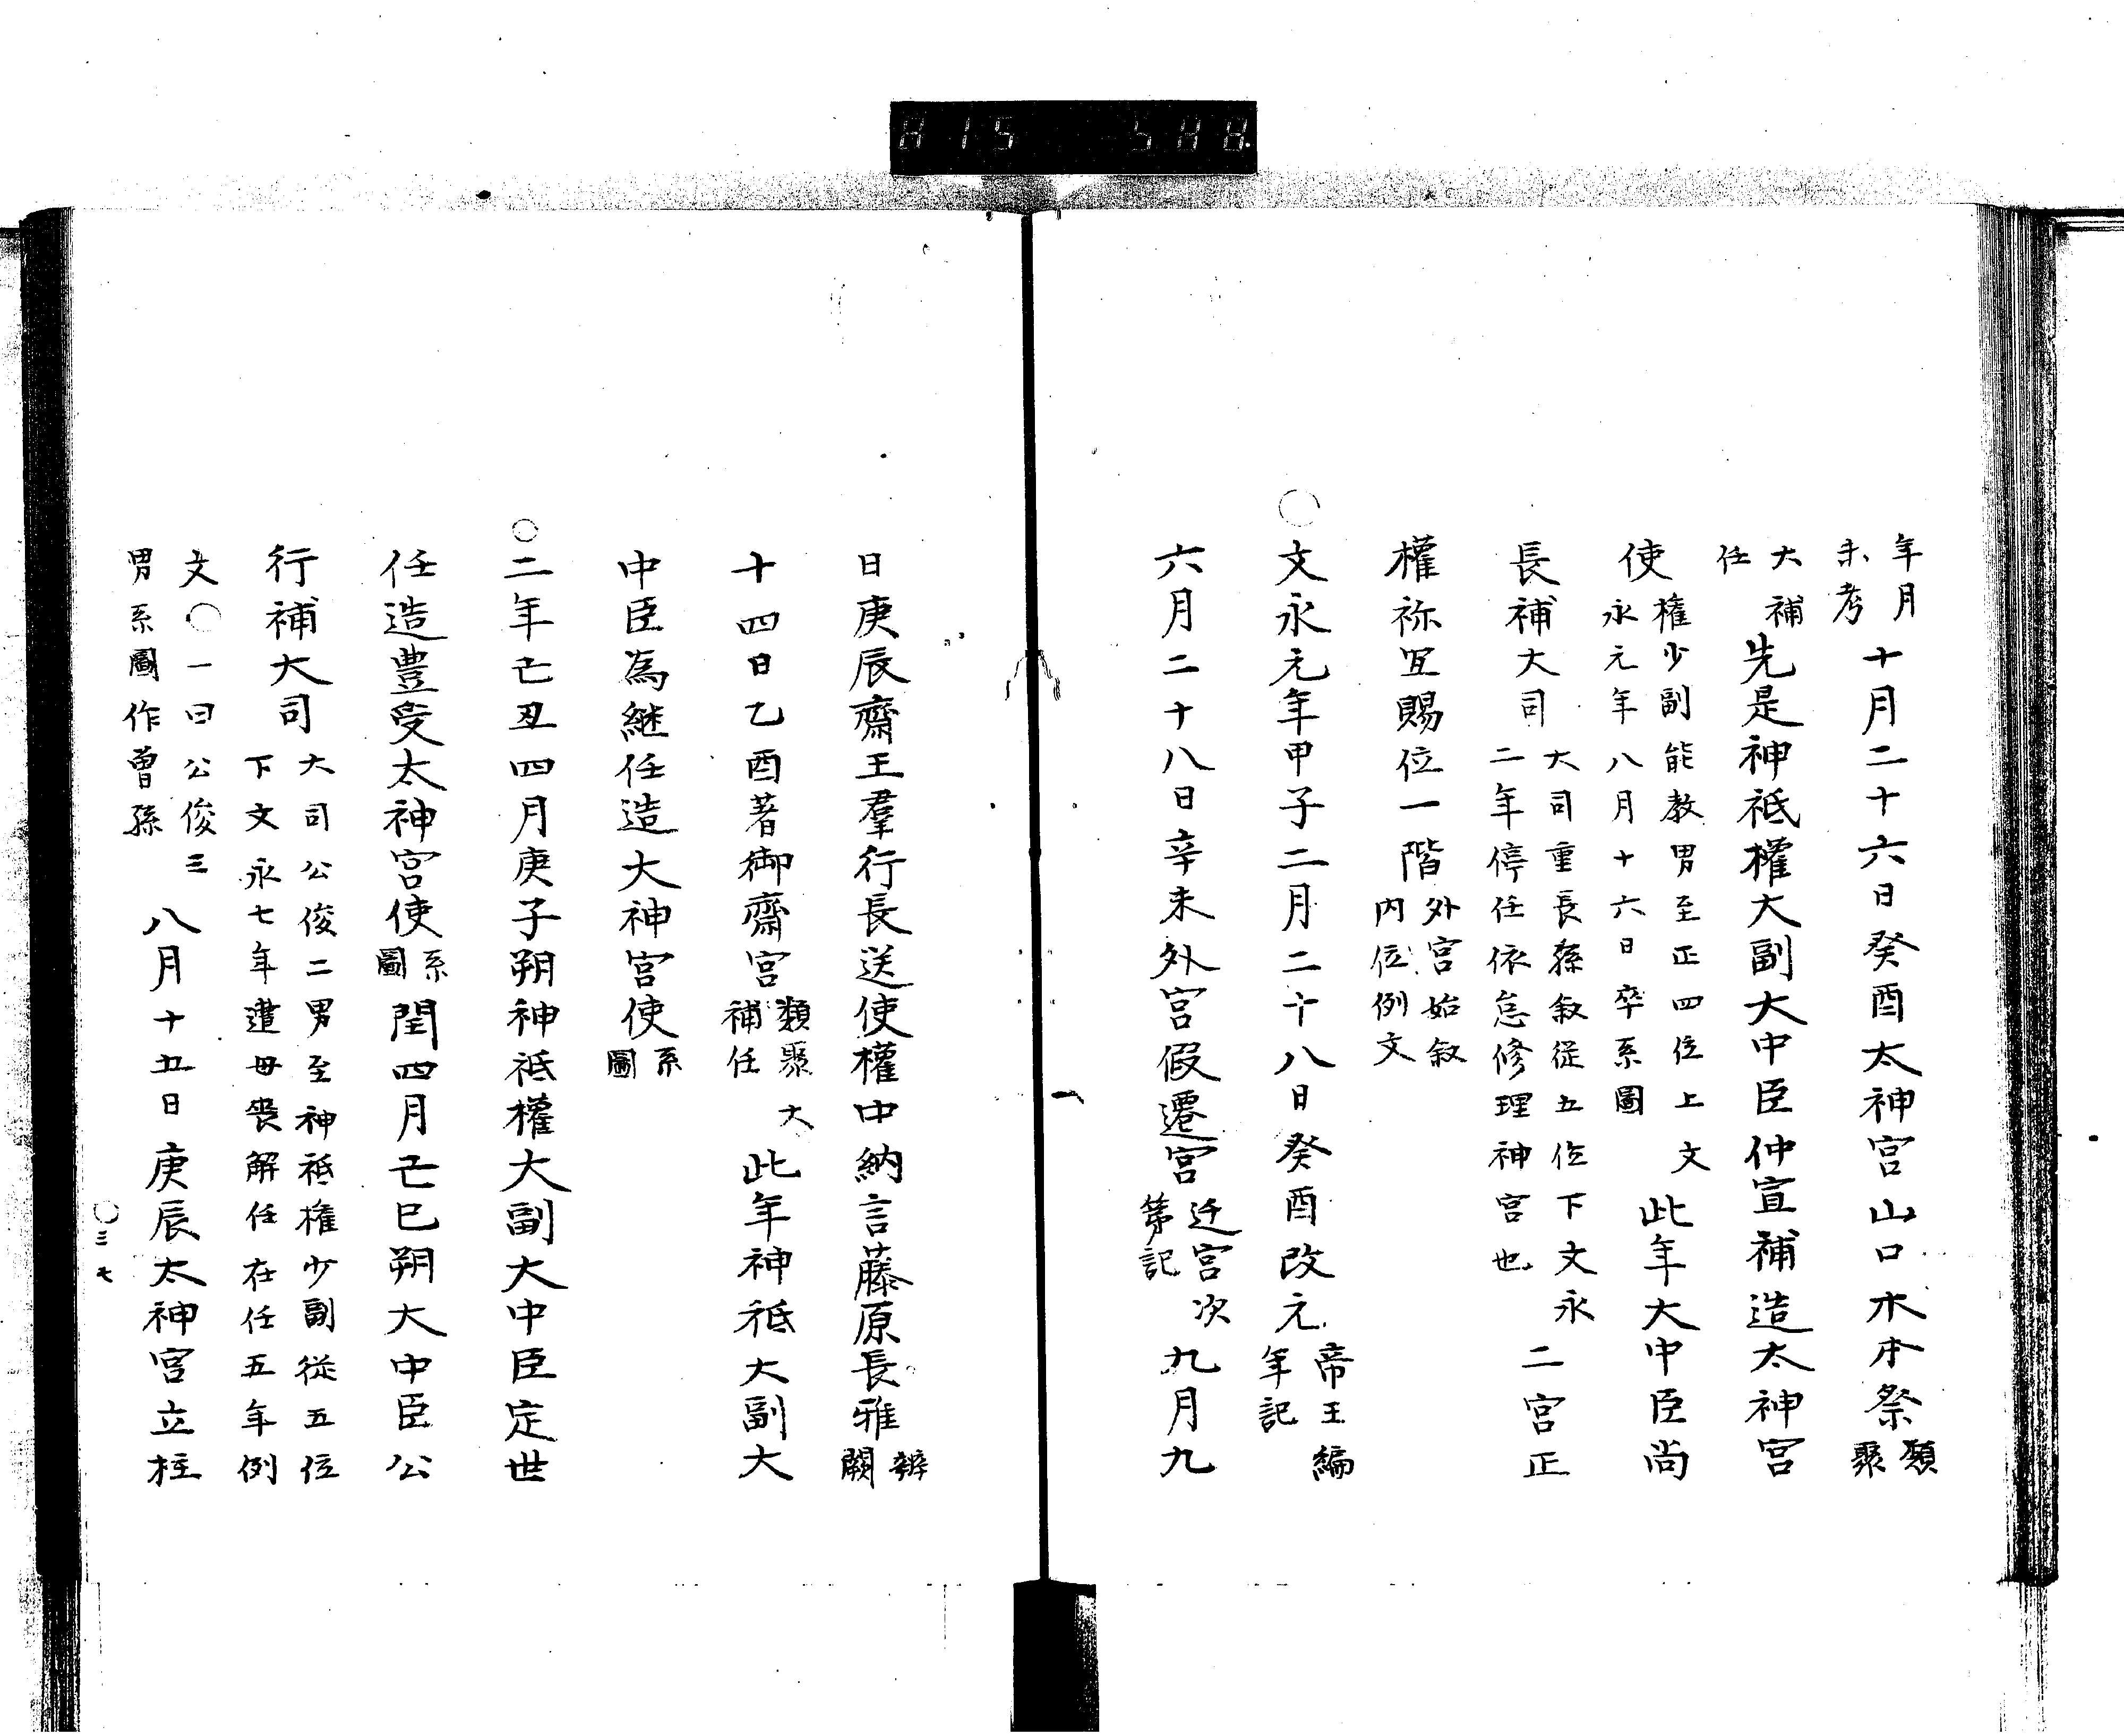 815 588
年月未考十月二十六日癸酉太神宮山口木本祭類聚
大補任先是神祇權大副大中臣仲宣補造太神宮
使權少副能教男至正四位上文永元年八月十六日卒系圖此年大中臣尚
長補大司大司重長孫叙従五位下文永二年停任依怠修理神宮也二宮正
權祢宜賜位一階外宮始叙内位例文
○文永元年甲子二月二十八日癸酉改元帝王編年記
六月二十八日辛未外宮假遷宮迁宮次第記九月九
日庚辰齋王羣行長送使權中納言藤原長雅辨闕
十四日乙酉著御齋宮類聚大補任此年神祇大副大
中臣為継任造大神宮使系圖
○二年乙丑四月庚子朔神祇權大副大中臣定世
任造豊受太神宮使系圖閏四月己巳朔大中臣公
行補大司大司公俊二男至神祇権少副従五位下文永七年遭母喪解任在任五年例
文○一曰公俊三男系圖作曽孫八月十五日庚辰太神宮立柱
○三七